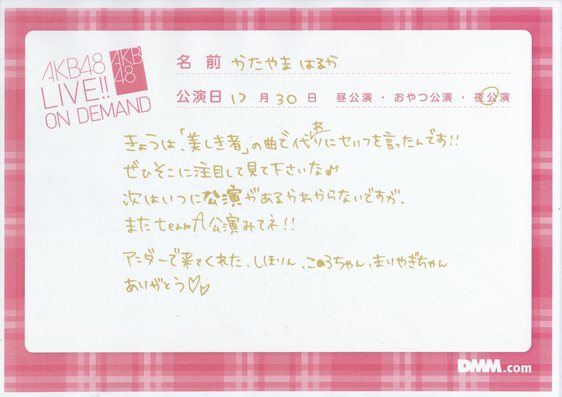 AKB48
LIVE!!
ON DEMAND
AKB
48
名前 かたやま はるか
公演日 12 月 30 日 昼公演・おやつ公演・夜公演
きょうは、「美しき者」の曲で代わりにセリフを言ったんです!!
ぜひそこに注目して見て下さいな♪
次はいつに公演があるかわからないですが、
またteamA公演みてネ!!
アンダーで来てくれた、しほりん、こもろちゃん、まりやぎちゃん
ありがとう♡♡
DMM.com